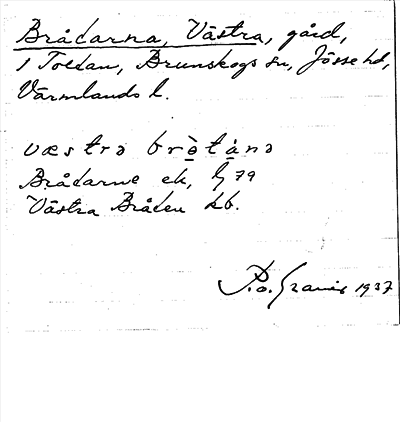 Brådarna, Västra, gård,
i Toedan, Brunskogs sn, Jösse hd,
Värmlands l.
væstrə brètánə
Brådarne ek, bj 79
Västra Bråden kb.
P.o. Granér 1937